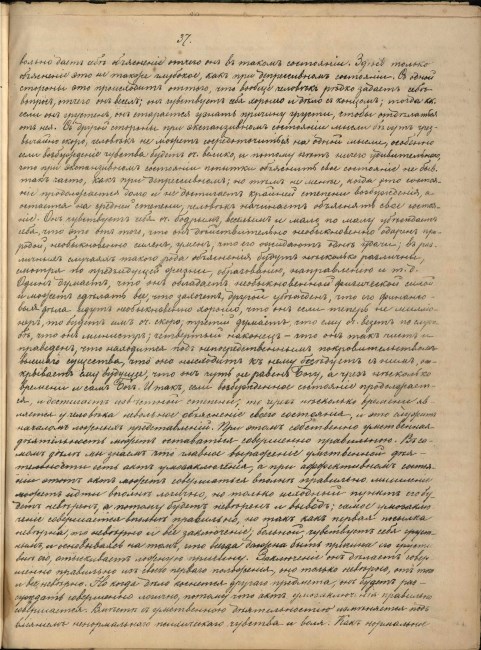 37.
вольно даетъ себѣ объясненіе отчего онъ въ такомъ состояніи. Здѣсь только
объясненіе это не такое глубокое, какъ при депрессивномъ состояніи. Съ одной
стороны это происходитъ оттого, что вообще человѣкъ рѣдко задаетъ себѣ
вопросъ, отчего онъ веселъ; онъ чувствуетъ себя хорошо и дѣло съ концомъ; тогда какъ
если онъ грустенъ, онъ старается узнать причину грусти, чтобы отдѣлаться
отъ нея. Съ другой стороны при экспансивномъ состояніи мысли бѣгутъ чрез-
вычайно скоро, человѣкъ не можетъ сосредоточиться на одной мысли, особенно
если возбужденіе чувства будетъ оч. велико, и потому нѣтъ ничего удивительнаго,
что при экспансивномъ состояніи попытки объяснить свое состояніе не быв.
такъ часто, какъ при депрессивномъ; но тѣмъ не менѣе, когда это состоя-
ніе продолжается долго и не достигаетъ крайней степени возбужденія, а
остается на средней степени, человѣкъ начинаетъ объяснять свое состоя-
ніе. Онъ чувствуетъ себя оч. бодрымъ, веселымъ и мало по малу убѣждаетъ
себя, что это отъ того, что онъ дѣйствительно необыкновенно одаренъ при-
родой, необыкновенно силенъ, уменъ, что его ожидаютъ однѣ удачи; въ раз-
личныхъ случаяхъ такого рода объясненія будутъ нѣсколько различны,
смотря по предыдущей жизни, образованію, направленію и т. д.
Одинъ думаетъ, что онъ обладаетъ необыкновенной физической силой
и можетъ сдѣлать все, что захочетъ, другой убѣжденъ, что его финансо-
выя дѣла идутъ необыкновенно хорошо, что онъ если теперь не милліо-
неръ, то будетъ имъ оч. скоро, третій думаетъ, что ему оч. везетъ по служ-
бѣ, что онъ министръ; четвертый наконецъ – что онъ такъ счаст-
ливъ, что находится подъ непосредственнымъ покровительствомъ
высшаго существа, что оно нисходитъ къ нему бесѣдуетъ съ нимъ, от-
крываетъ ему будущее, что онъ чуть не равенъ Богу, а чрезъ нѣсколько
времени и самъ Богъ. Итакъ, если возбужденное состояніе продолжает-
ся, и достигаетъ извѣстной степени, то чрезъ нѣсколько времени яв-
ляется у человѣка невольное объясненіе своего состоянія, и это служитъ
началомъ ложныхъ представленій. При этомъ собственно умственная
дѣятельность можетъ оставаться совершенно правильною. Въ са-
момъ дѣлѣ мы знаемъ что главное выраженіе умственной дѣя-
тельности есть актъ умозаключенія, а при аффективномъ состоя-
ніи этотъ актъ можетъ совершаться вполнѣ правильно мышленіе
можетъ идти вполнѣ логично, но только исходный пунктъ его бу-
детъ невѣренъ, а потому будетъ невѣренъ и выводъ; самое умозаклю-
ченіе совершается вполнѣ правильно, но такъ какъ первая посылка
невѣрна, то невѣрно и все заключеніе, больной, чувствуетъ себя грust-
нымъ и основываясь на томъ, что всегда должна быть причина его груст-
ного, отыскиваетъ ложную причину. Заключеніе онъ дѣлаетъ совер-
шенно правильно изъ своего перваго положенія, оно только невѣрно, отъ того
и все невѣрно. Но когда дѣло коснется другаго предмета, онъ будетъ раз-
суждать совершенно логично, потому что актъ умозаключенія правильно
совершается. Вмѣстѣ съ умственною дѣятельностію измѣняется подъ
вліяніемъ ненормальнаго психическаго чувства и воля. Какъ нормальные